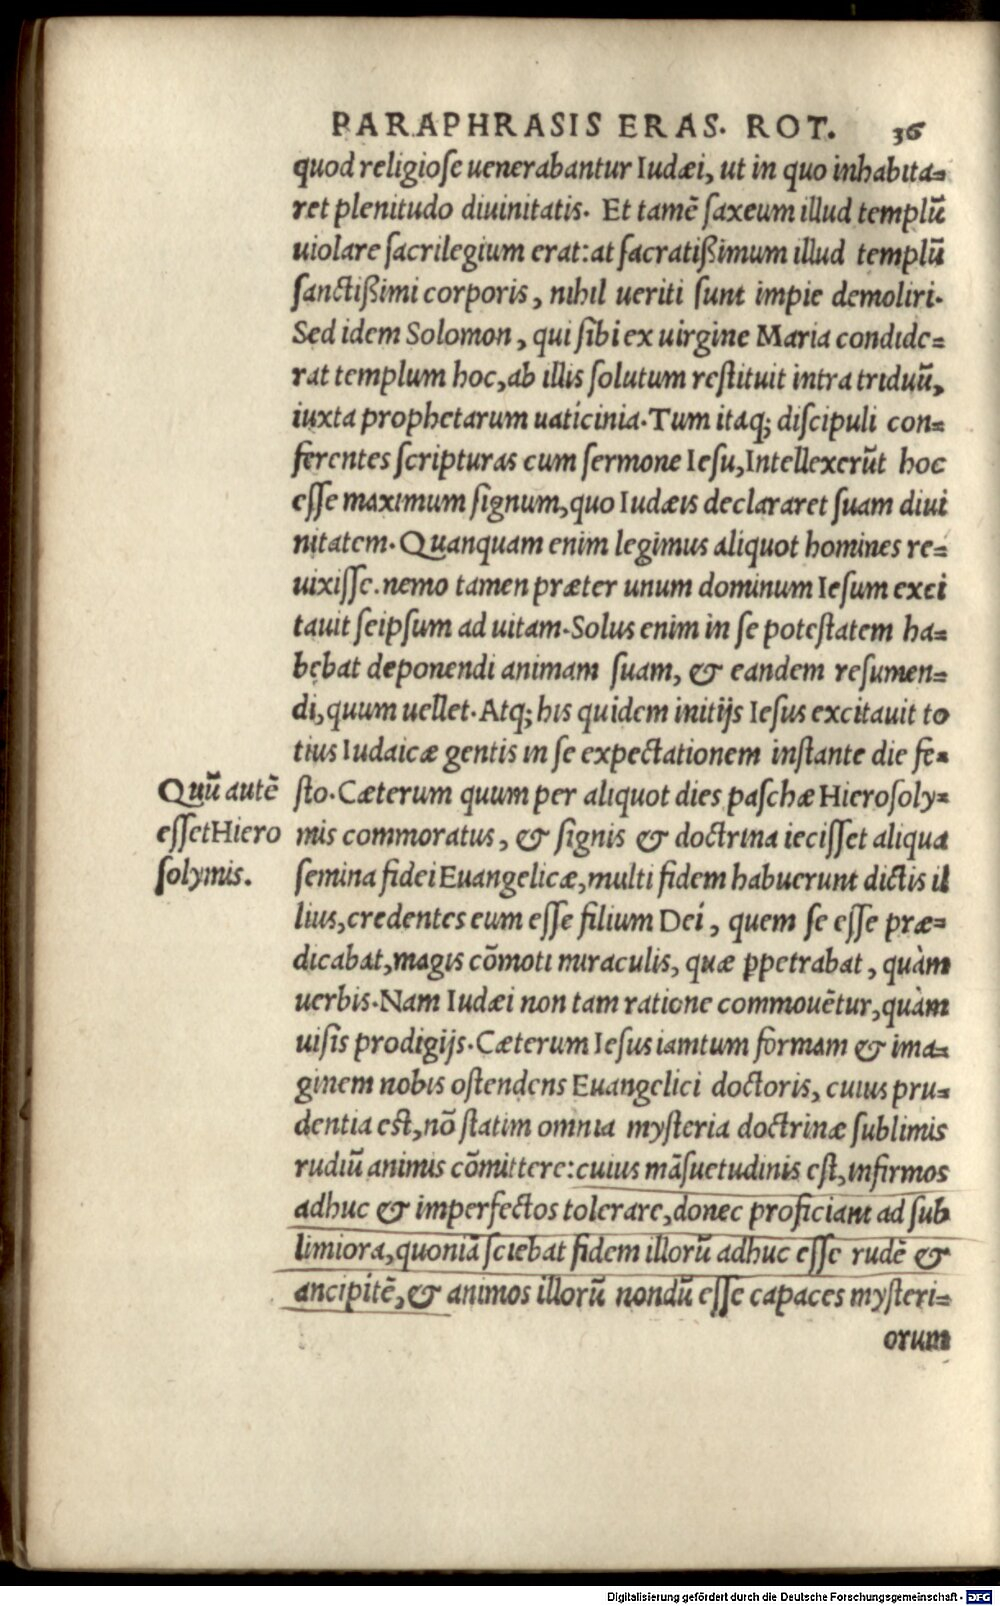 PARAPHRASIS ERAS. ROT. 36
quod religiose uenerabantur Iudæi, ut in quo inhabita=
ret plenitudo diuinitatis. Et tamẽ saxeum illud templũ
uiolare sacrilegium erat: at sacratißimum illud templũ
sanctißimi corporis, nihil ueriti sunt impie demoliri.
Sed idem Solomon, qui sibi ex uirgine Maria condide=
rat templum hoc, ab illis solutum restituit intra triduũ,
iuxta prophetarum uaticinia. Tum itaq; discipuli con=
ferentes scripturas cum sermone Iesu, Intellexerũt hoc
esse maximum signum, quo Iudæis declararet suam diui
nitatem. Quanquam enim legimus aliquot homines re=
uixisse. nemo tamen præter unum dominum Iesum exci
tauit seipsum ad uitam. Solus enim in se potestatem ha=
bebat deponendi animam suam, & eandem resumen=
di, quum uellet. Atq; his quidem initijs Iesus excitauit to
tius Iudaicæ gentis in se expectationem instante die fe=
Quũ autẽ
essetHiero
solymis.
sto. Cæterum quum per aliquot dies paschæ Hierosoly=
mis commoratus, & signis & doctrina iecisset aliqua
semina fidei Euangelicæ, multi fidem habuerunt dictis il
lius, credentes eum esse filium Dei, quem se esse præ=
dicabat, magis cõmoti miraculis, quæ ꝑpetrabat, quàm
uerbis. Nam Iudæi non tam ratione commouẽtur, quàm
uisis prodigijs. Cæterum Iesus iamtum formam & ima=
ginem nobis ostendens Euangelici doctoris, cuius pru=
dentia est, nõ statim omnia mysteria doctrinæ sublimis
rudiũ animis cõmittere: cuius mãsuetudinis est, infirmos
adhuc & imperfectos tolerare, donec proficiant ad sub
limiora, quoniã sciebat fidem illorũ adhuc esse rudẽ &
ancipitẽ, & animos illorũ nondũ esse capaces mysteri=
orum
Digitalisierung gefördert durch die Deutsche Forschungsgemeinschaft - DFG